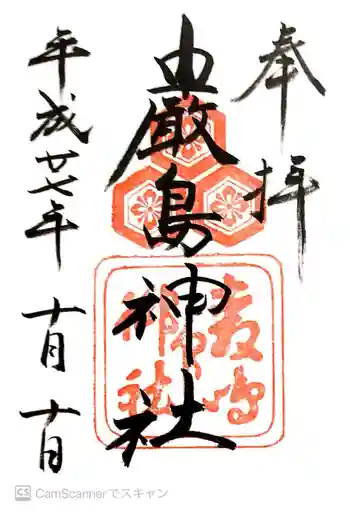 奉拝
厳島神社
平成廿七年 十月 十日
CS CamScannerでスキャン